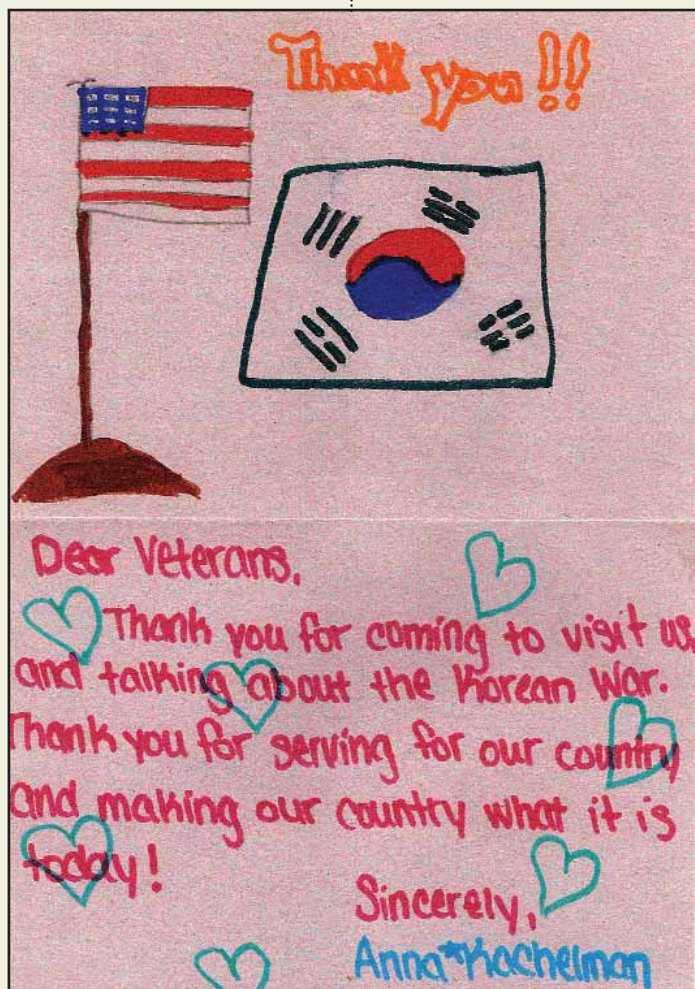 Thank you!!
Dear Veterans,
Thank you for coming to visit us,
and talking about the Korean War.
Thank you for serving for our country
and making our country what it is
today!
Sincerely,
Anna*Kachelman